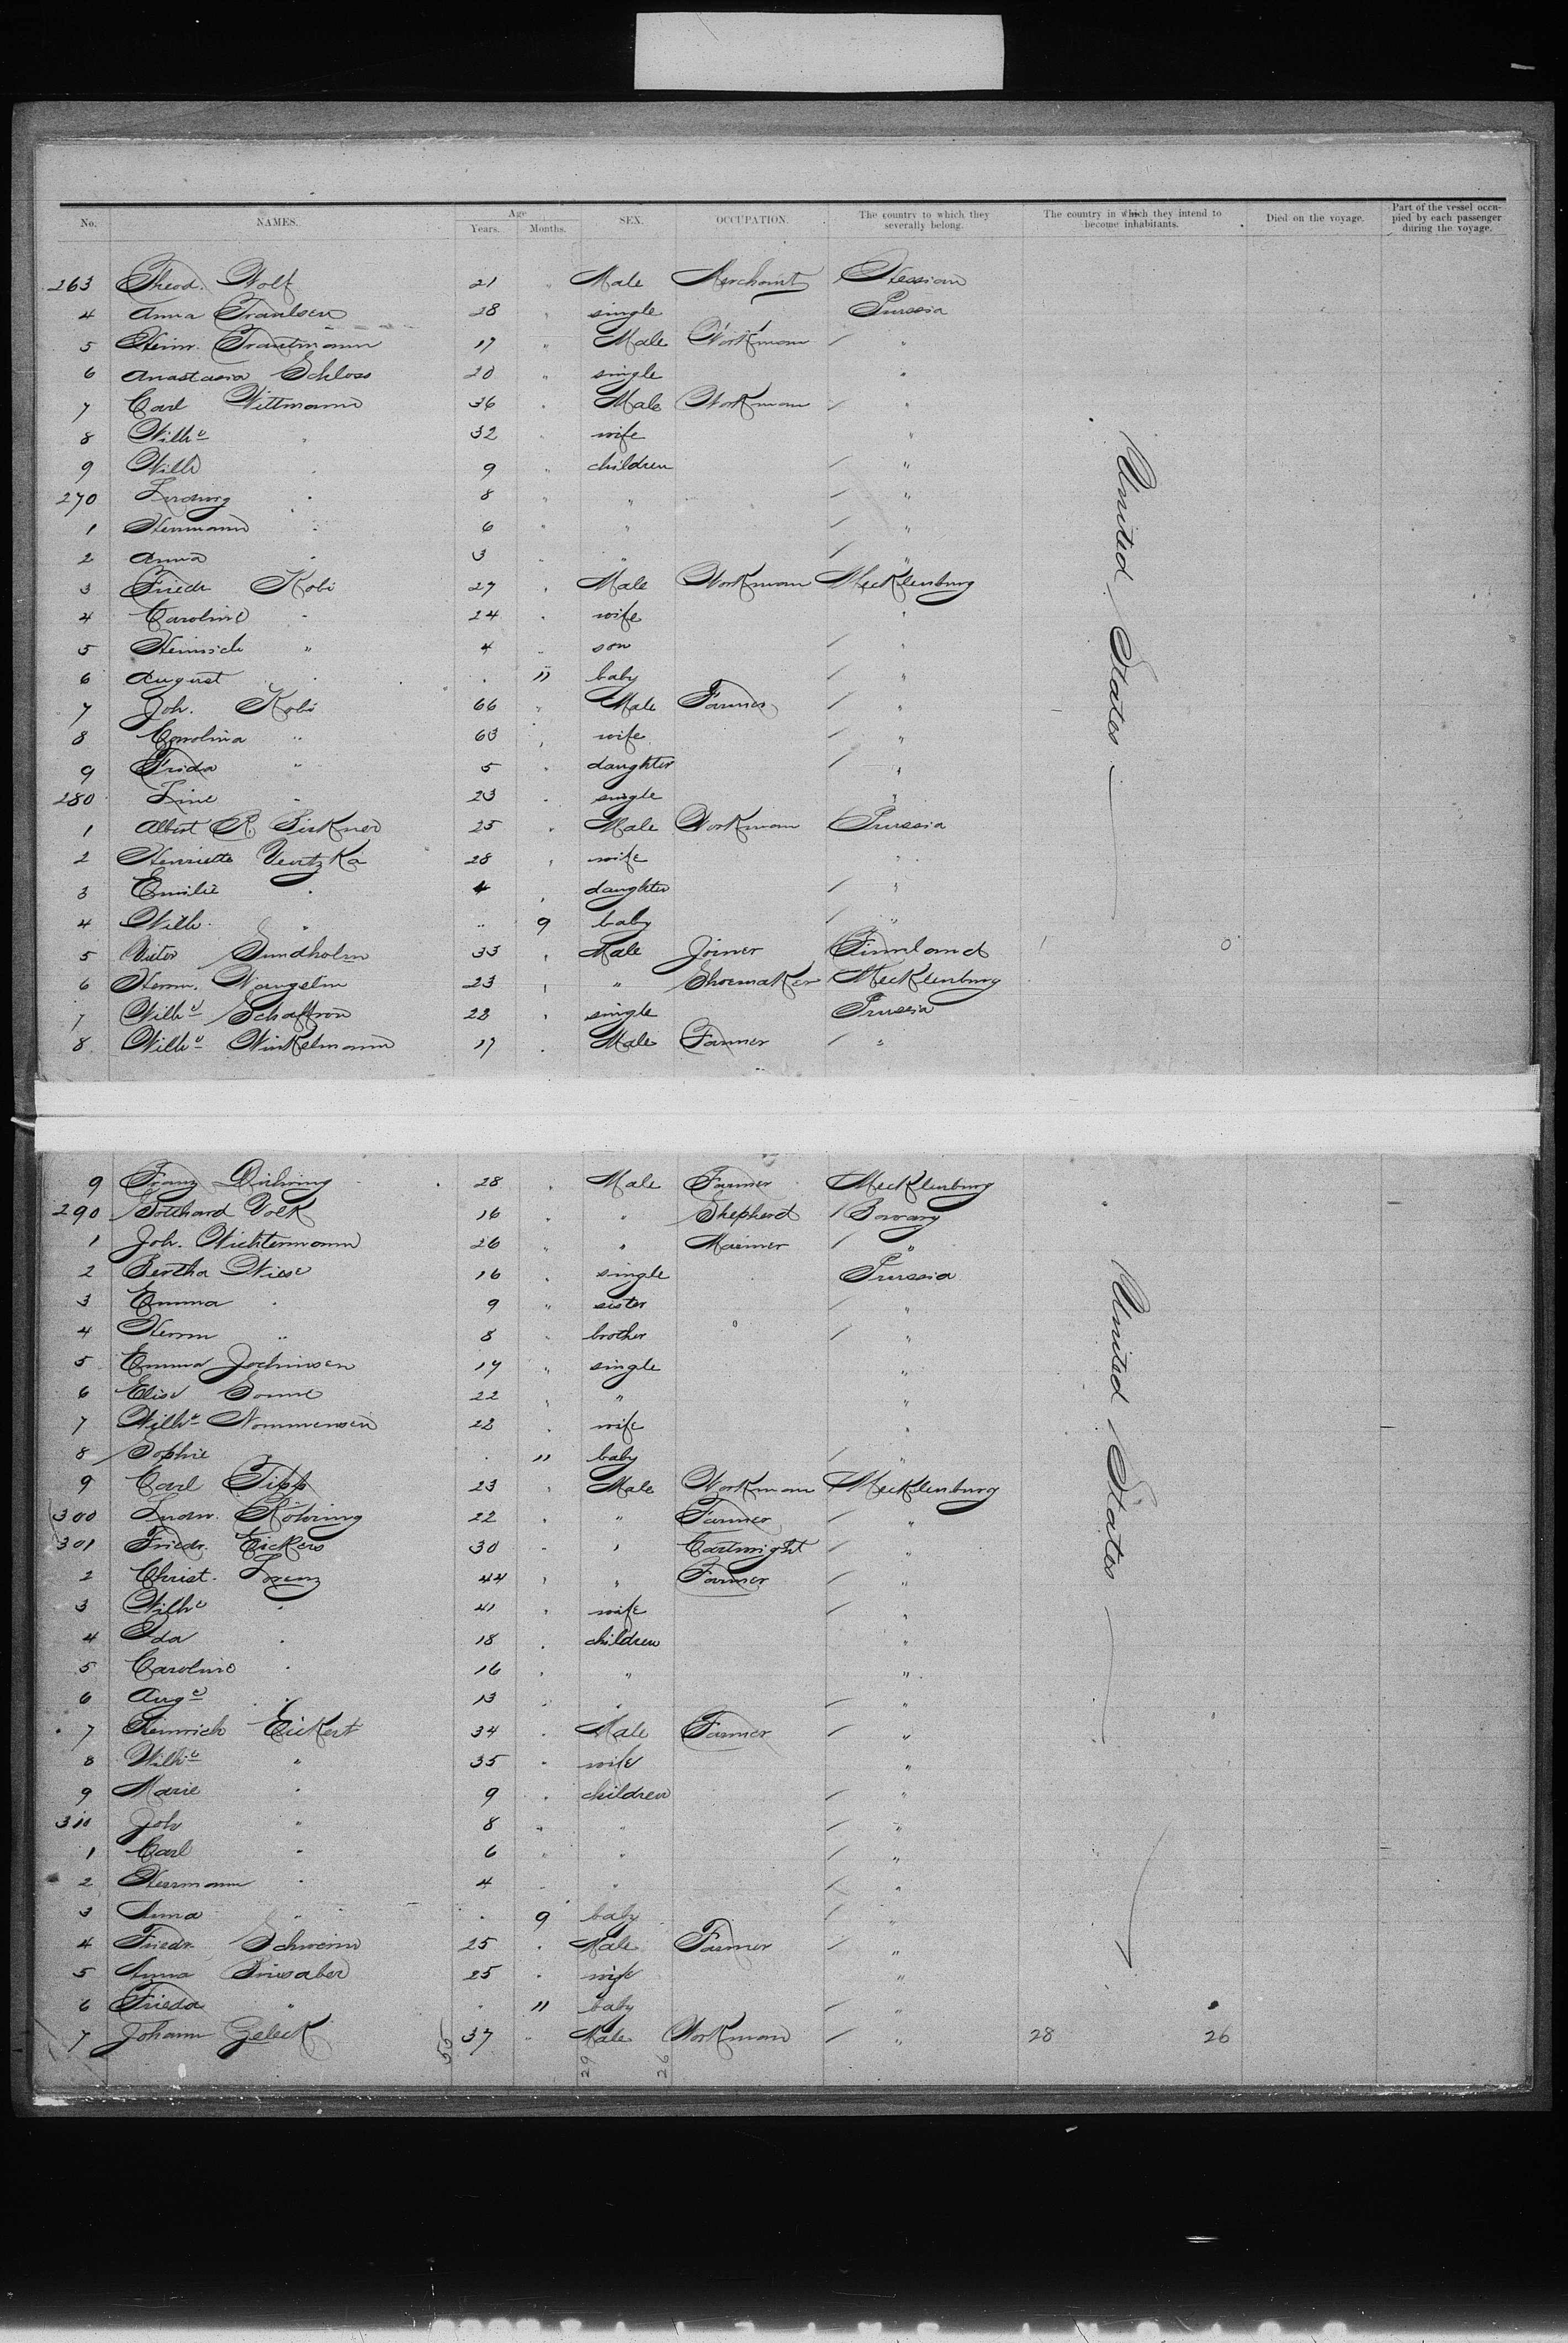 No. NAMES. Age Years. Months. SEX. OCCUPATION. The country to which they severally belong. The country in which they intend to become inhabitants. Died on the voyage. Part of the vessel occupied by each passenger during the voyage.
263 Theod. Wolf 21 " Male Merchant Hessian
4 Anna Traulsen 28 " single Prussia
5 Heinr. Trautmann 17 " Male Workman "
6 Anastasia Schloss 20 " single "
7 Carl Wittmann 36 " Male Workman "
8 Wilhe " 32 " wife "
9 Wilh " 9 " children "
270 Ludwig " 8 " " "
1 Hermann " 6 " " "
2 Anna " 3 " " "
3 Friedr Kobi 27 " Male Workman Mecklenburg
4 Caroline " 24 " wife "
5 Heinrich " 4 " son "
6 August " " 11 baby "
7 Joh. Kobi 66 " Male Farmer "
8 Carolina " 63 " wife "
9 Frida " 5 " daughter "
280 Line " 23 " single "
1 Albert R. Birkner 25 " Male Workman Prussia
2 Henriette 28 " wife "
3 Emilie " 4 " daughter "
4 Wilh. " " 9 baby "
5 Victor Sundholm 33 " Male Joiner Finnland
6 Herm. Wangelin 23 " " Shoemaker Mecklenburg
7 Wilhe Schaffron 22 " single Prussia
8 Wilhe Winkelmann 17 " Male Farmer "
United States
9 Franz 28 " Male Farmer Mecklenburg
290 Gotthard Volk 16 " " Shepherd Bavary
1 Joh. Wichtermann 26 " " "
2 Bertha Wiese 16 " single Prussia
3 Emma " 9 " sister "
4 Herm " 8 " brother "
5 Emma Jochimsen 19 " single "
6 Elise Sonne 22 " " "
7 Wilhe Nommensen 22 " wife "
8 Sophie " 11 baby "
9 Carl Tipp 23 " Male Workman Mecklenburg
300 Ludw. Köhring 22 " " Farmer "
301 Friedr. Eickers 30 " " Cartwright "
2 Christ. Lorenz 44 " " Farmer "
3 Wilhe " 41 " wife "
4 Ida " 18 " children "
5 Caroline " 16 " " "
6 Auge " 13 " " "
7 Heinrich Eickert 34 " Male Farmer "
8 Wilhe " 35 " wife "
9 Marie " 9 " children "
310 Joh " 8 " " "
1 Carl " 6 " " "
2 Hermann " 4 " " "
3 Anna " " 9 baby "
4 Friedr. Schwerin 25 " Male Farmer "
5 Anna 25 " wife "
6 Frieda " " 11 baby "
7 Johann Geleck 37 " Male Workman " 28 26
United States
55 29 26